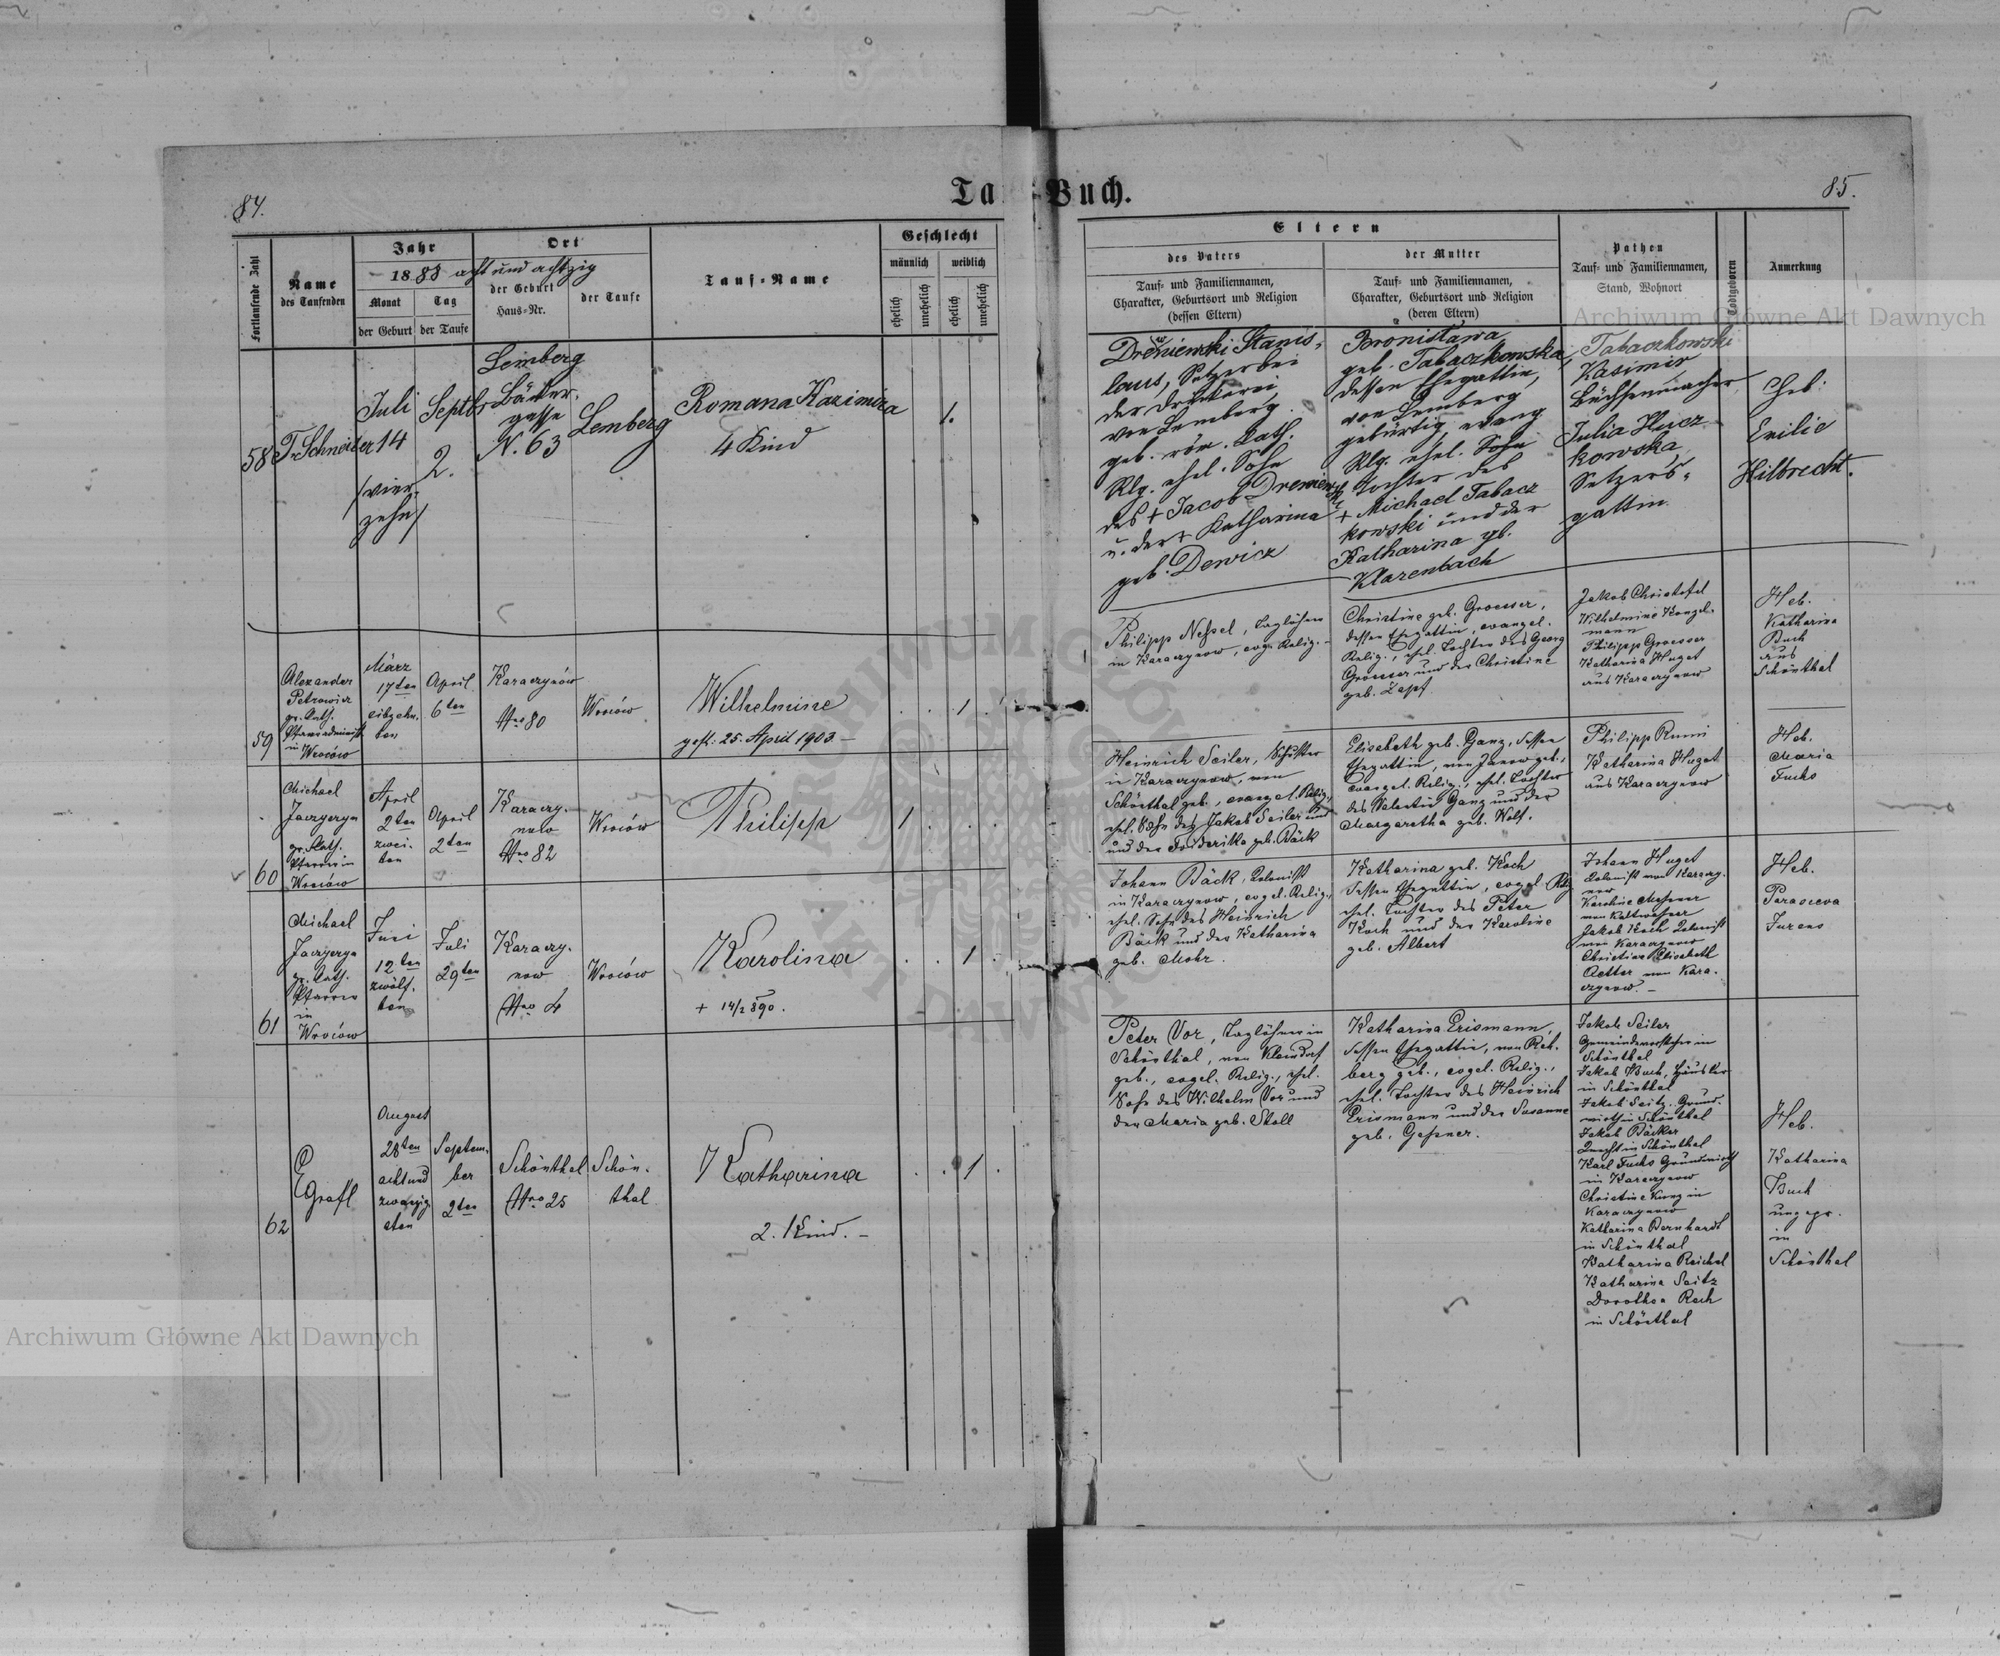 84.
Tauf-Buch.
85.
Fortlaufende Zahl
Name
des Taufenden
Jahr
1888 acht und achtzig
Monat
Tag
der Geburt
der Taufe
Ort
der Geburt
Haus-Nr.
der Taufe
Tauf-Name
Geschlecht
männlich
weiblich
ehelich
unehelich
ehelich
unehelich
Eltern
des Vaters
Tauf- und Familiennamen,
Charakter, Geburtsort und Religion
(dessen Eltern)
der Mutter
Tauf- und Familiennamen,
Charakter, Geburtsort und Religion
(deren Eltern)
Pathen
Tauf- und Familiennamen,
Stand, Wohnort
Todtgeboren
Anmerkung
58
Fr. Schneider
Juli
14
/vier-
zehn/
Septbr
2.
Lemberg
Bäcker-
gasse
N. 63
Lemberg
Romana Kazimira
4 Kind
1.
Dreniewski Stanis-
laus, Setzer bei
der Druckerei
von Lemberg
geb. röm. kath.
Rlg. ehel. Sohn
des + Jacob Dreniewski
u. der + Katharina
geb. Dewicz
Bronisława
geb. Tabaczkowska,
dessen Ehegattin,
von Lemberg
gebürtig, evang.
Rlg. ehel.
Tochter des
+ Michael Tabacz
kowski und der
Katharina gb.
Klarenbach
Tabaczkowski
Kasimir
Büchsenmacher
Julia Hucz
kowska
Setzers-
gattin.
Heb:
Emilie
Hilbrecht.
59
Alexander
Petrowicz
gr. kath.
Pfarradminist.
in
Wroców
März
17ten
siebzehn-
ten
April
6ten
Karaczynów
Hno 80
Wroców
Wilhelmine
gest. 25. April 1903.–
1
Philipp Nessel, Taglöhner
in Karaczynow, evg. Relig.–
Christine geb. Groesser,
dessen Ehegattin, evangel.
Relig., ehel. Tochter des Georg
Groesser und der Christine
geb. Zapf
Jakob Christofel
Wilhelmine Konzel-
mann
Philipp Groesser
Katharina Huget
aus Karaczynow
Heb.
Katharina
Buch
aus
Schönthal
60
Michael
gr. Kath.
Pfarrer in
Wroców
April
2ten
zwei-
ten
April
2ten
Karaczy-
now
Hno 82
Wroców
Philipp
1
Heinrich Seiler, Schuster
in Karaczynow, von
Schönthal geb., evangel. Relig.,
ehel. Sohn des Jakob Seiler und
und der Friderika geb. Bäck
Elisabeth geb. Ganz, dessen
Ehegattin, von Janow geb.,
evangel. Relig., ehel. Tochter
des Valentin Ganz und der
Margaretha geb. Wolf.
Philipp Rumi
Katharina Huget
aus Karaczynow
Heb.
Maria
Fuchs
61
Michael
gr. Kath.
Pfarrer
in
Wroców
Juni
12ten
zwölf-
ten
Juli
29ten
Karaczy-
now
Hno 4
Wroców
Karolina
+ 14/2 890.
1
Johann Bäck, Kolonist
in Karaczynow, evgel. Relig.,
ehel. Sohn des Heinrich
Bäck und der Katharina
geb. Mohr.
Katharina geb. Koch
dessen Ehegattin, evgel. Relg.
ehel. Tochter des Peter
Koch und der Karoline
geb. Albert
Johann Huget
Kolonist von Karaczy-
now
Karoline
von Kaltwasser
Jakob Koch Kolonist
von Karaczynow
Christine Elisabeth
von Kara-
czynow.–
Heb.
Parasceva
62
E Grafl
August
28ten
acht und
zwanzig
sten
Septem-
ber
2ten
Schönthal
Hno 25
Schön-
thal
Katharina
2. Kind.–
1
Peter Vor, Taglöhner in
Schönthal, von Kleindorf
geb., evgel. Relig., ehel.
Sohn des Wilhelm Vor und
der Maria geb. Stoll
Katharina Erismann,
dessen Ehegattin, von Reh-
berg geb., evgel. Relig.,
ehel. Tochter des Heinrich
Erismann und der Susanne
geb. Gessner.
Jakob Seiler
Gemeindevorsteher in
Schönthal
Jakob Buch, Häusler
in Schönthal
Jakob Seitz, Grund-
wirth in Schönthal
Jakob Bäcker
Knecht in Schönthal
Karl Fuchs Grundwirth
in Karaczynow
Christine Kunz in
Karaczynow
Katharina Bernhardt
in Schönthal
Katharina Reichel
Katharina Seitz
Dorothea Rech
in Schönthal
Heb.
Katharina
Buch
ungepr.
in
Schönthal
Archiwum Główne Akt Dawnych
Archiwum Główne Akt Dawnych